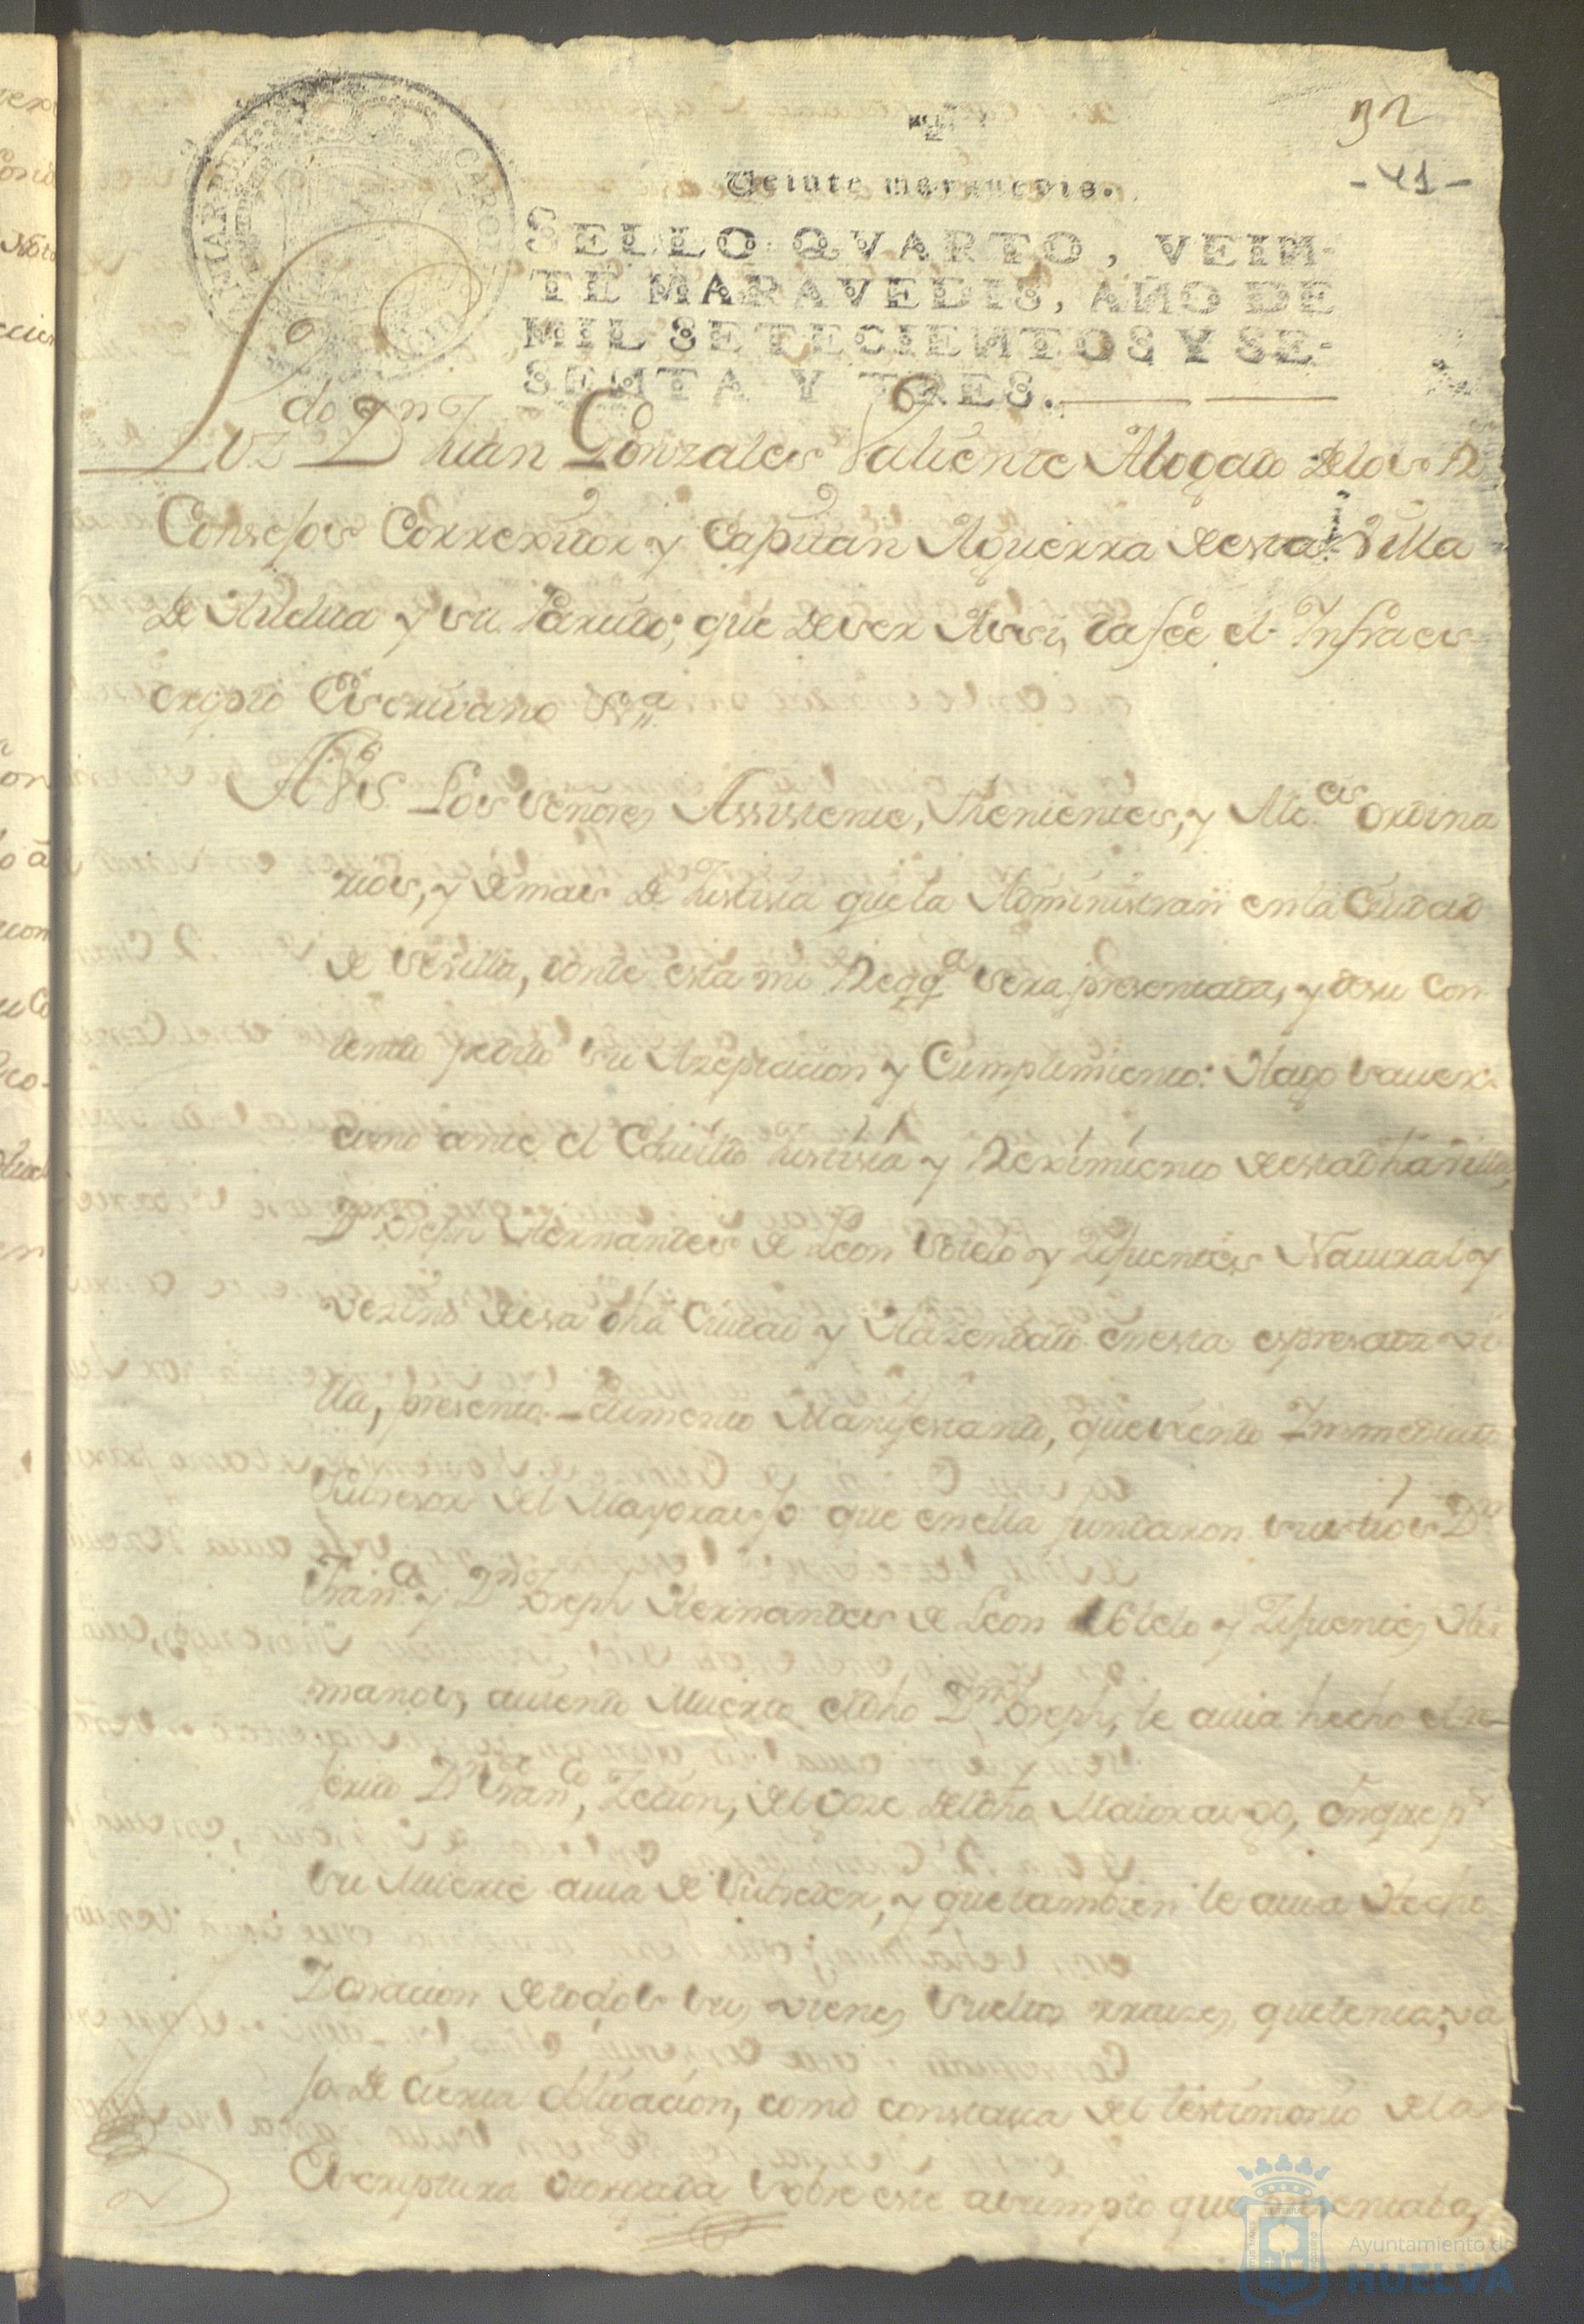 32
- 41 -
Veinte maravedis.
SELLO QVARTO, VEIN-
TE MARAVEDIS, AÑO DE
MIL SETECIENTOS Y SE-
SENTA Y TRES.
CAROL
Lizdo Dn Juan Gonzales Valiente Abogado delos R
Consejos Correxidor y Capitan Aguerra deesta Villa
de Huelua y su Partido; que de ser Assi, da feè el Infraes-
cripto Escriuano
A VSs Los señores Assistente, Thenientes, y Alces ordina
rios, y demas de Justisia que la Administran en la Ciudad
de Sevilla, donde esta mi Reqqa sera presentada, y de su con
tenido pedido su Azeptacion y Cumplimiento: Hago sauer
como ante el Cavildo Justisia y Reximiento deesta dha villa,
Dn Joseph Hernandes de Leon Toledo y Zifuentes Natural y
vezino deesa dha Ciudad y Hazendado en esta espresada vi
lla, presento Manifestando, que siendo Immediato
Subsesor del Mayorasgo que en ella fundaron sus tios Dn
Franco y Dn Joseph Hernandes de Leon Toledo y Zifuentes Her
manos, auiendo Muerto eldho Dn Joseph, le auia hecho el re-
ferido Dn Franco, Zecion, del Goze deldho Maiorasgo, en que pr
su Muerte auia de Subseder, y que tambien le auia Hecho
Donacion de todos sus vienes sueltos rraizes, que tenia, va
jo de cierta obligacion, como constaua del testimonio de la
Escriptura otorgada sobre este asumpto que presentaba,
Ayuntamiento de
HUELVA